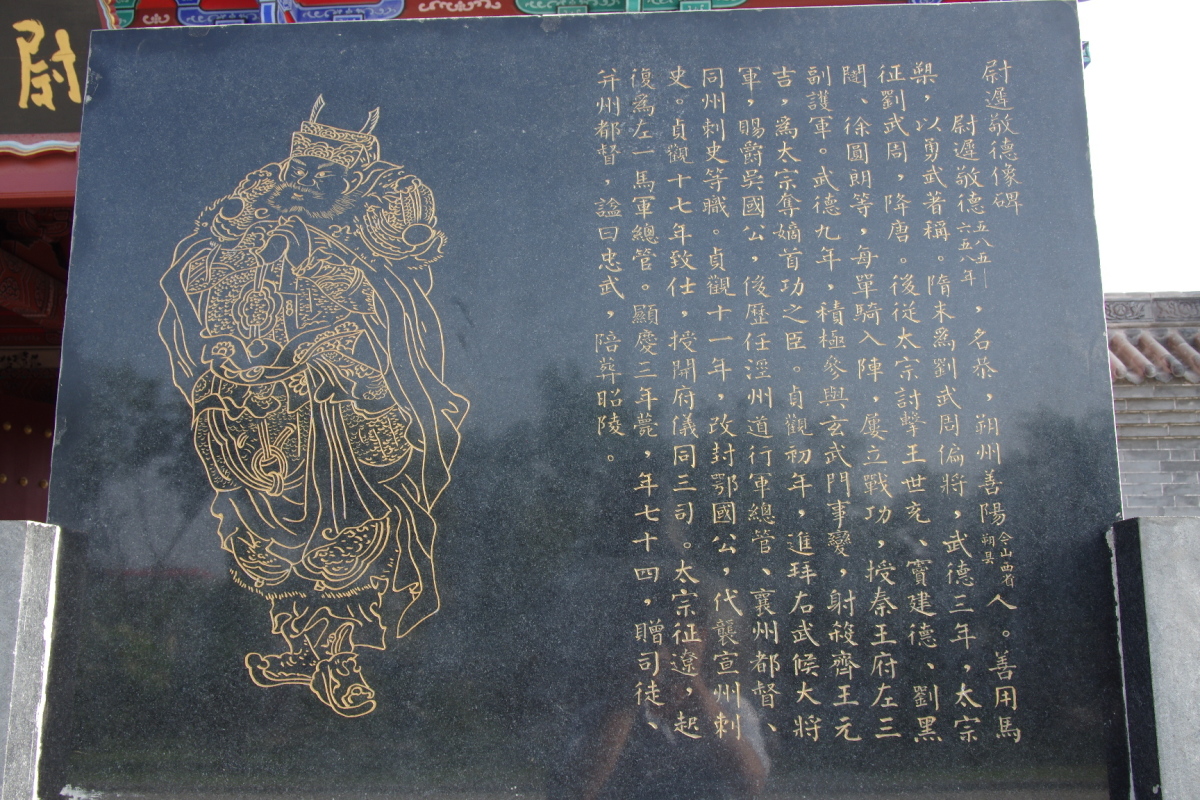 尉
尉遲敬德像碑
尉遲敬德五八五—六五八年，名恭，朔州善陽今山西省朔县人。善用馬
槊，以勇武著稱。隋末爲劉武周偏將，武德三年，太宗
征劉武周，降唐。後從太宗討擊王世充、竇建德、劉黑
闥、徐圓朗等，每單騎入陣，屢立戰功，授秦王府左三
副護軍。武德九年，積極參與玄武門事變，射殺齊王元
吉，爲太宗奪嫡首功之臣。貞觀初年，進拜右武候大將
軍，賜爵吳國公，後歷任涇州道行軍總管、襄州都督、
同州刺史等職。貞觀十一年，改封鄂國公，代襲宣州刺
史。貞觀十七年致仕，授開府儀同三司。太宗征遼，起
復爲左一馬軍總管。顯慶三年薨，年七十四，贈司徒、
并州都督，謚曰忠武，陪葬昭陵。